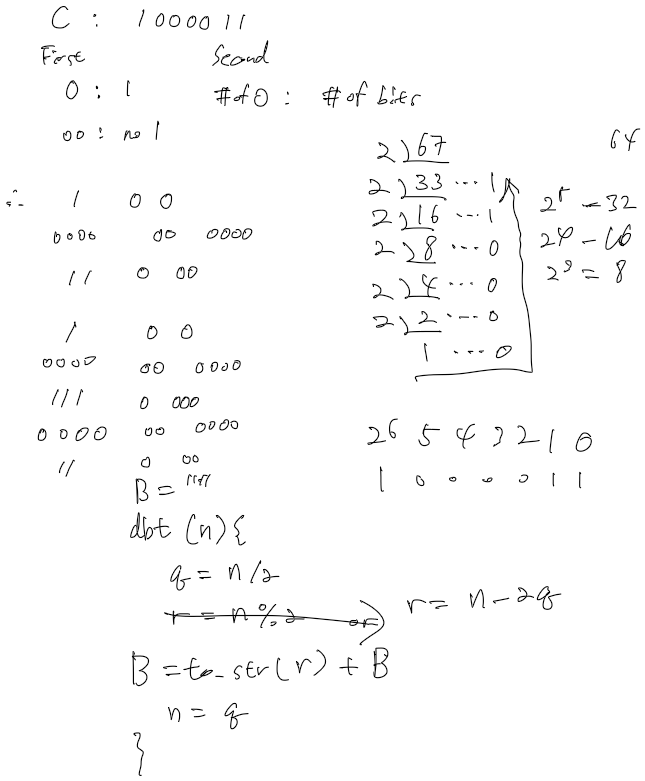 C : 1000011
First Second
0 : 1 # of 0 : # of bits
00 : no 1
∴ 1 0 0
0000 00 0000
11 0 00
1 0 0
0000 00 0000
111 0 000
0000 00 0000
11 0 00
B = ""
dbt (n){
q = n/2
r = n%2 or r = n-2q
B = to_str(r) + B
n = q
}
2)67
2)33 ... 1
2)16 ... 1
2)8 ... 0
2)4 ... 0
2)2 ... 0
1 ... 0
64
2⁵ = 32
2⁴ = 16
2³ = 8
2⁶ 5 4 3 2 1 0
1 0 0 0 0 1 1